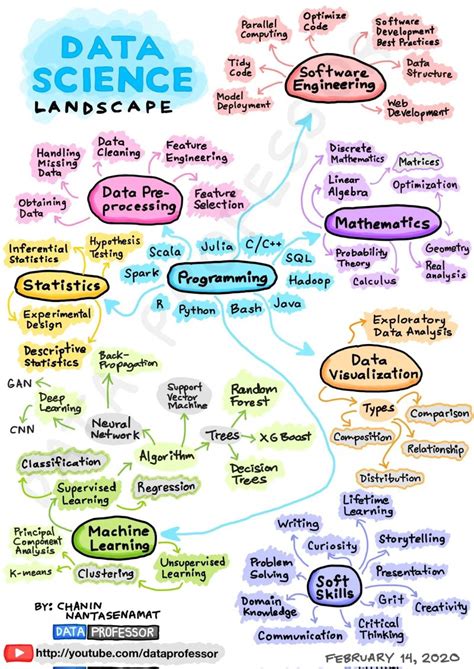 DATA
SCIENCE
LANDSCAPE
Parallel
Computing
Optimize
Code
Software
Development
Best Practices
Tidy
Code
Software
Engineering
Data
Structure
Model
Deployment
Web
Development
Handling
Missing
Data
Data
Cleaning
Feature
Engineering
Obtaining
Data
Data Pre-
processing
Feature
Selection
Discrete
Mathematics
Matrices
Linear
Algebra
Optimization
Mathematics
Probability
Theory
Calculus
Geometry
Real
analysis
Inferential
Statistics
Hypothesis
Testing
Statistics
Experimental
Design
Descriptive
Statistics
Scala
Julia
C/C++
SQL
Spark
Programming
Hadoop
R
Python
Bash
Java
Exploratory
Data Analysis
Data
Visualization
Types
Comparison
Composition
Relationship
Distribution
GAN
CNN
Deep
Learning
Back-
Propagation
Neural
Network
Support
Vector
Machine
Random
Forest
Algorithm
Trees
XG Boost
Decision
Trees
Classification
Supervised
Learning
Regression
Principal
Component
Analysis
Machine
Learning
K-means
Clustering
Unsupervised
Learning
Lifetime
Learning
Writing
Curiosity
Storytelling
Problem
Solving
Soft
Skills
Presentation
Domain
Knowledge
Grit
Creativity
Communication
Critical
Thinking
BY: CHANIN
NANTASENAMAT
DATA PROFESSOR
http://youtube.com/dataprofessor
FEBRUARY 14, 2020
DATA PROFESSOR